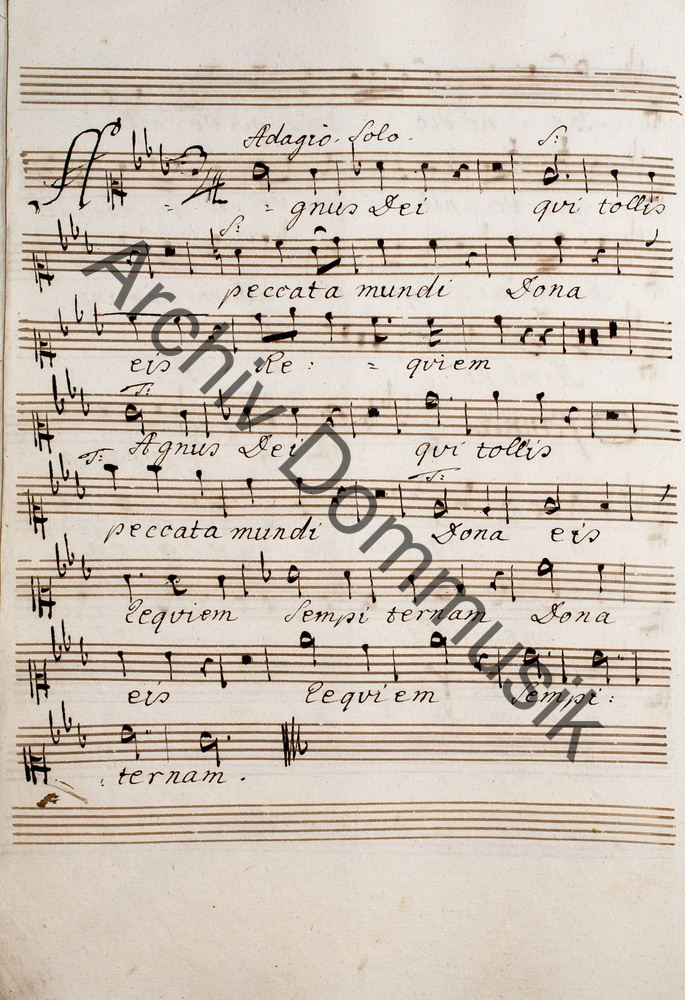 Adagio. Solo. S:
A - gnus Dei qvi tollis
S:
peccata mundi Dona
eis Re: = qviem
T:
Agnus Dei qvi tollis
T: T:
peccata mundi Dona eis
Reqviem Sempi ternam Dona
eis Reqviem Sempi:
ternam.
Archiv Dommusik